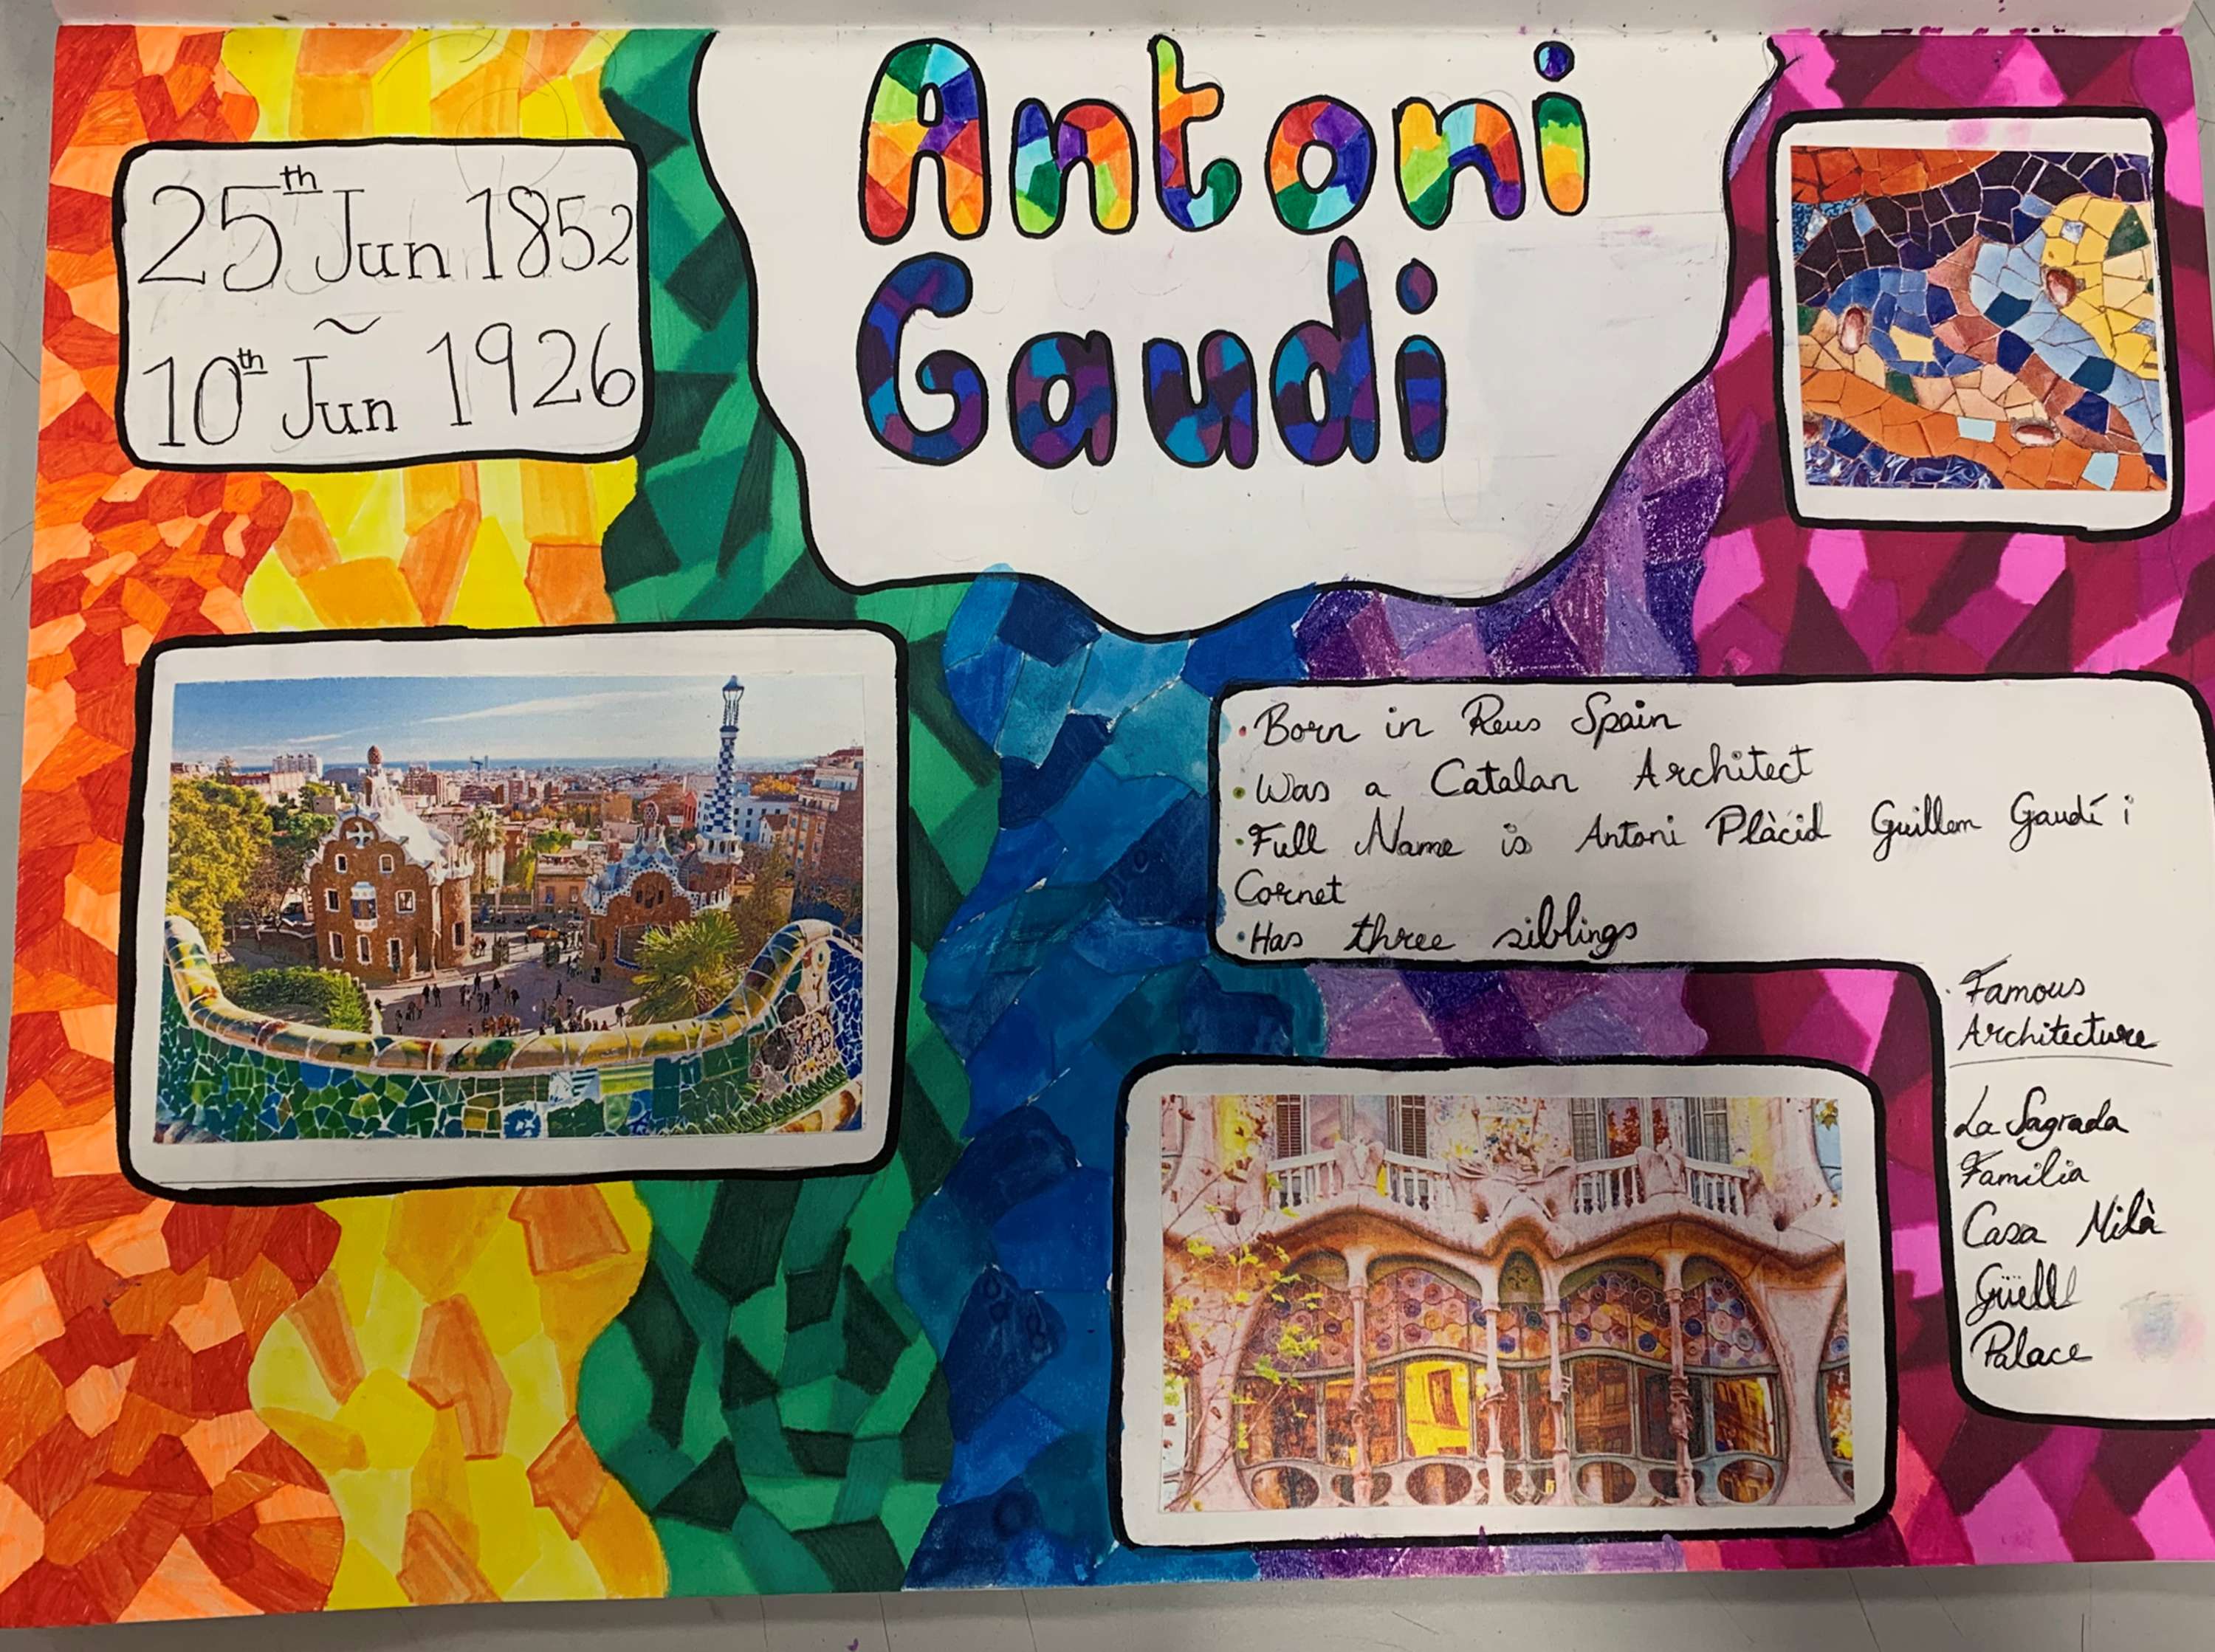 Antoni
Gaudi
25th Jun 1852
~
10th Jun 1926
• Born in Reus Spain
• Was a Catalan Architect
• Full Name is Antoni Plàcid Guillem Gaudí i
Cornet
• Has three siblings
• Famous
Architecture
La Sagrada
Familia
Casa Milà
Güell
Palace